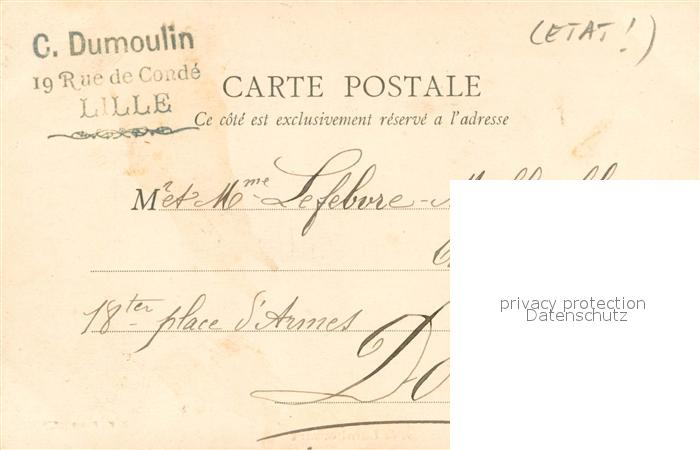 C. Dumoulin
19 Rue de Condé
LILLE
(ETAT!)
CARTE POSTALE
Ce côté est exclusivement réservé a l'adresse
Mr et Mme Lefebvre-
18ter place d'Armes
Do
privacy protection
Datenschutz